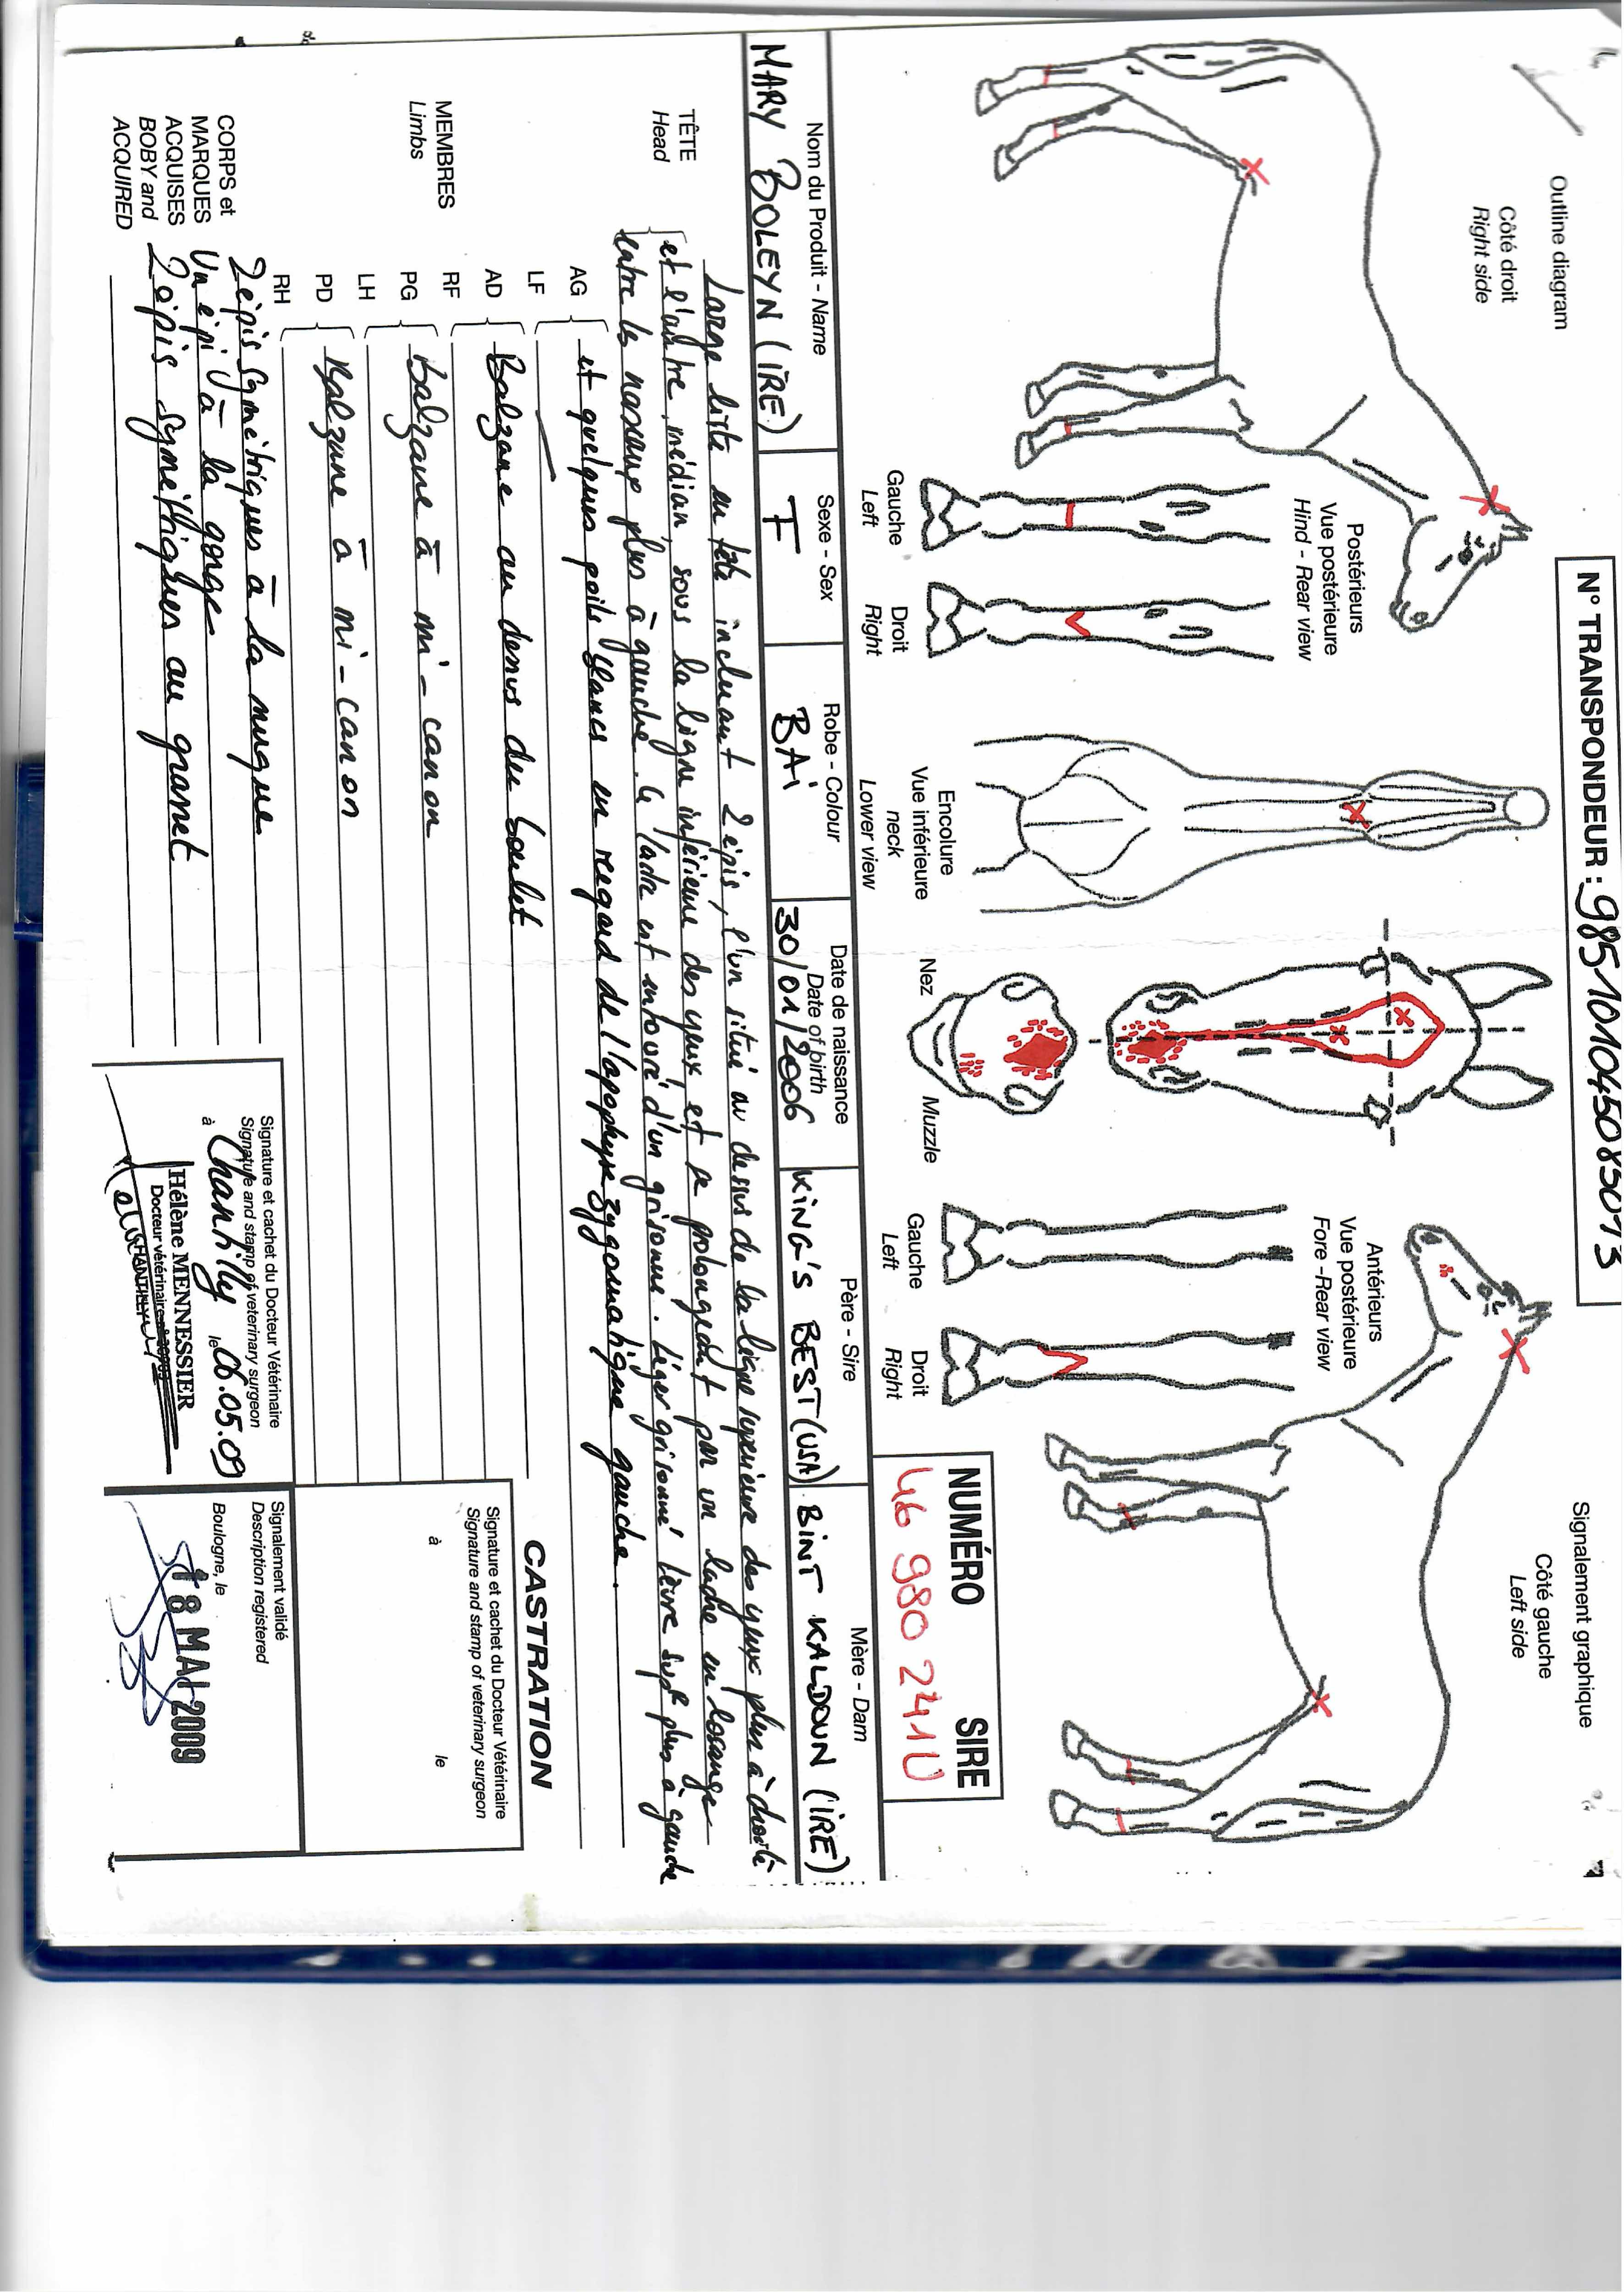 Outline diagram
Signalement graphique
N° TRANSPONDEUR : 985101045085073
Côté droit
Right side
Côté gauche
Left side
Postérieurs
Vue postérieure
Hind - Rear view
Antérieurs
Vue postérieure
Fore - Rear view
Gauche
Left
Droit
Right
Encolure
Vue inférieure
neck
Lower view
Nez
Muzzle
Gauche
Left
Droit
Right
NUMÉRO SIRE
46 980 241U
Nom du Produit - Name
Sexe - Sex
Robe - Colour
Date de naissance
Date of birth
Père - Sire
Mère - Dam
MARY BOLEYN (IRE)
F
BAI
30/01/2006
KING'S BEST (USA)
BINT KALDOUN (IRE)
TÊTE
Head
Large liste en tête incluant 2 épis, l'un situé au dessus de la ligne supérieure des yeux plus à droite
et l'autre, médian, sous la ligne inférieure des yeux et se prolongeant par un ladre en losange
entre les naseaux plus à gauche. Le ladre est entouré d'un grisonné. Léger grisonné lèvre supre plus à gauche
et quelques poils blancs en regard de l'apophyse zygomatique gauche.
MEMBRES
Limbs
AG
LF
AD
RF
Balzane au dessus du boulet
PG
LH
balzane à mi-canon
PD
RH
Balzane à mi-canon
CORPS et
MARQUES
ACQUISES
BOBY and
ACQUIRED
2 épis symétriques à la nuque
Un épi à la gorge
2 épis symétriques au grasset
CASTRATION
Signature et cachet du Docteur Vétérinaire
Signature and stamp of veterinary surgeon
à
le
Signature et cachet du Docteur Vétérinaire
Signature and stamp of veterinary surgeon
à Chantilly le 06.05.09
Hélène MENNESSIER
Docteur vétérinaire
CHANTILLY
Signalement validé
Description registered
Boulogne, le
18 MAI 2009